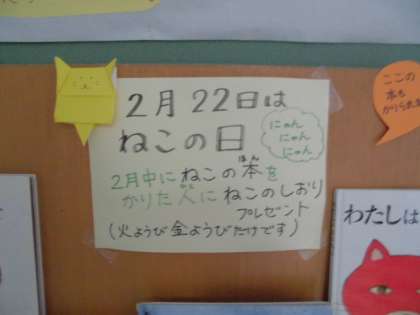 2月22日は
ねこの日
にゃん
にゃん
にゃん
2月中にねこの本を
ほん
かりた人にねこのしおり
プレゼント
(火ようび金ようびだけです)
ここの
本も
かりられま
わたしは